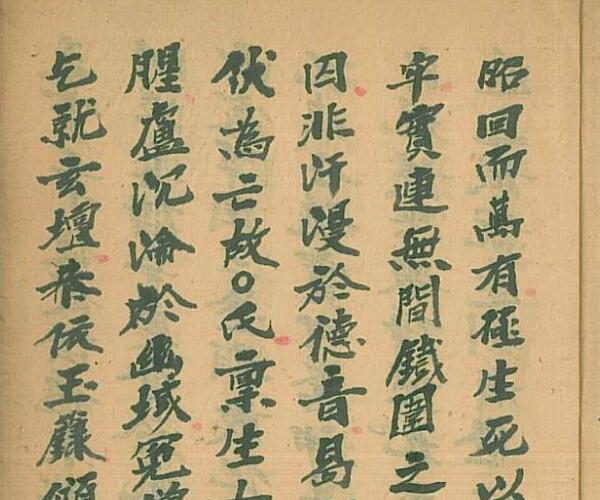 昭回而萬有徑生死以
牢實連無間鐵圍之
囚非汗漫於德音曷
伏為亡故○氏禀生
腥廬沉淪於幽域冤
乞就玄壇恭依玉籙